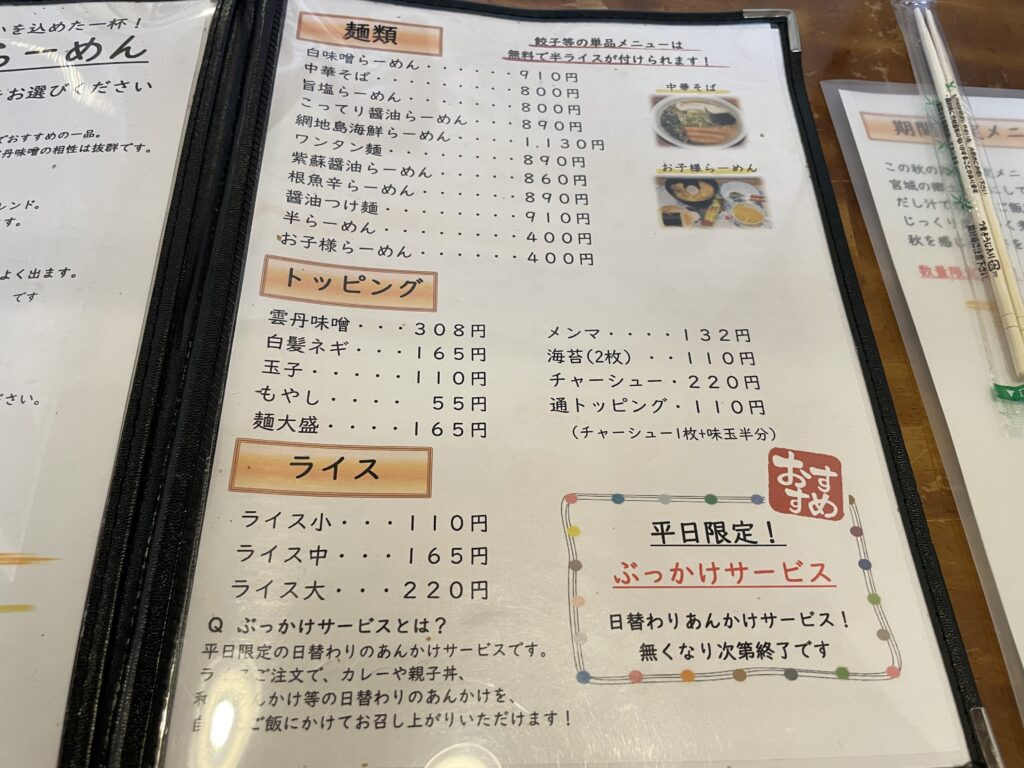 い を込めた一杯！
らーめん
お選びください
でおすすめの一品。
丹味噌の相性は抜群です。
レンド。
す。
よく出ます。
です
ださい。
麺類
餃子等の単品メニューは
無料で半ライスが付けられます！
白味噌らーめん・・・・・・・910円
中華そば・・・・・・・800円
旨塩らーめん・・・・・・・800円
こってり醤油らーめん・・・890円
網地島海鮮らーめん・・1,130円
ワンタン麺・・・・・・・890円
紫蘇醤油らーめん・・・・・860円
根魚辛らーめん・・・・・・890円
醤油つけ麺・・・・・・・910円
半らーめん・・・・・・・400円
お子様らーめん・・・・・・400円
中華そば
お子様らーめん
トッピング
雲丹味噌・・・308円
白髪ネギ・・・165円
玉子・・・・・110円
もやし・・・・ 55円
麺大盛・・・・165円
メンマ・・・・132円
海苔(2枚) ・・110円
チャーシュー・220円
通トッピング・110円
(チャーシュー1枚+味玉半分)
ライス
ライス小・・・110円
ライス中・・・165円
ライス大・・・220円
Q ぶっかけサービスとは？
平日限定の日替わりのあんかけサービスです。
ラ ご注文で、カレーや親子丼、
和 あんかけ等の日替わりのあんかけを、
自 ご飯にかけてお召し上がりいただけます！
おすすめ
平日限定！
ぶっかけサービス
日替わりあんかけサービス！
無くなり次第終了です
期間 メニ
この秋の
宮城の郷土
だし汁で
じっくり
秋を感じ
数量限定
つまようじ入り